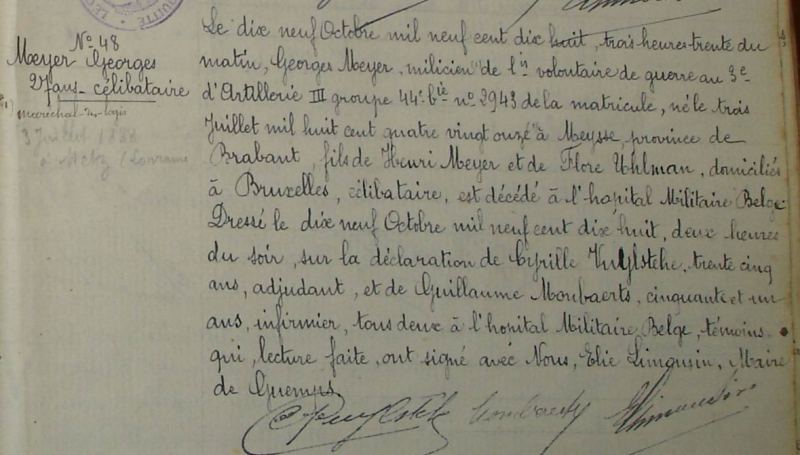 N° 48
Meyer Georges
27 ans célibataire
maréchal des logis
3 Juillet 1888
à Metz (Lorraine
Le dix neuf Octobre mil neuf cent dix huit, trois heures trente du
matin, Georges Meyer, milicien de l'is volontaire de guerre au 3e
d'Artillerie III groupe 44e bie n° 2943 de la matricule, né le trois
Juillet mil huit cent quatre vingt onze à Meysse, province de
Brabant, fils de Henri Meyer et de Flore Uhlman, domiciliés
à Bruxelles, célibataire, est décédé à l'hopital Militaire Belge
Dressé le dix neuf Octobre mil neuf cent dix huit, deux heures
du soir, sur la déclaration de Cyrille Vuylsteke, trente cinq
ans, adjudant, et de Guillaume Moubaerts, cinquante et un
ans, infirmier, tous deux à l'hopital Militaire Belge, témoins
qui, lecture faite, ont signé avec Nous, Elie Limousin, Maire
de Guemps